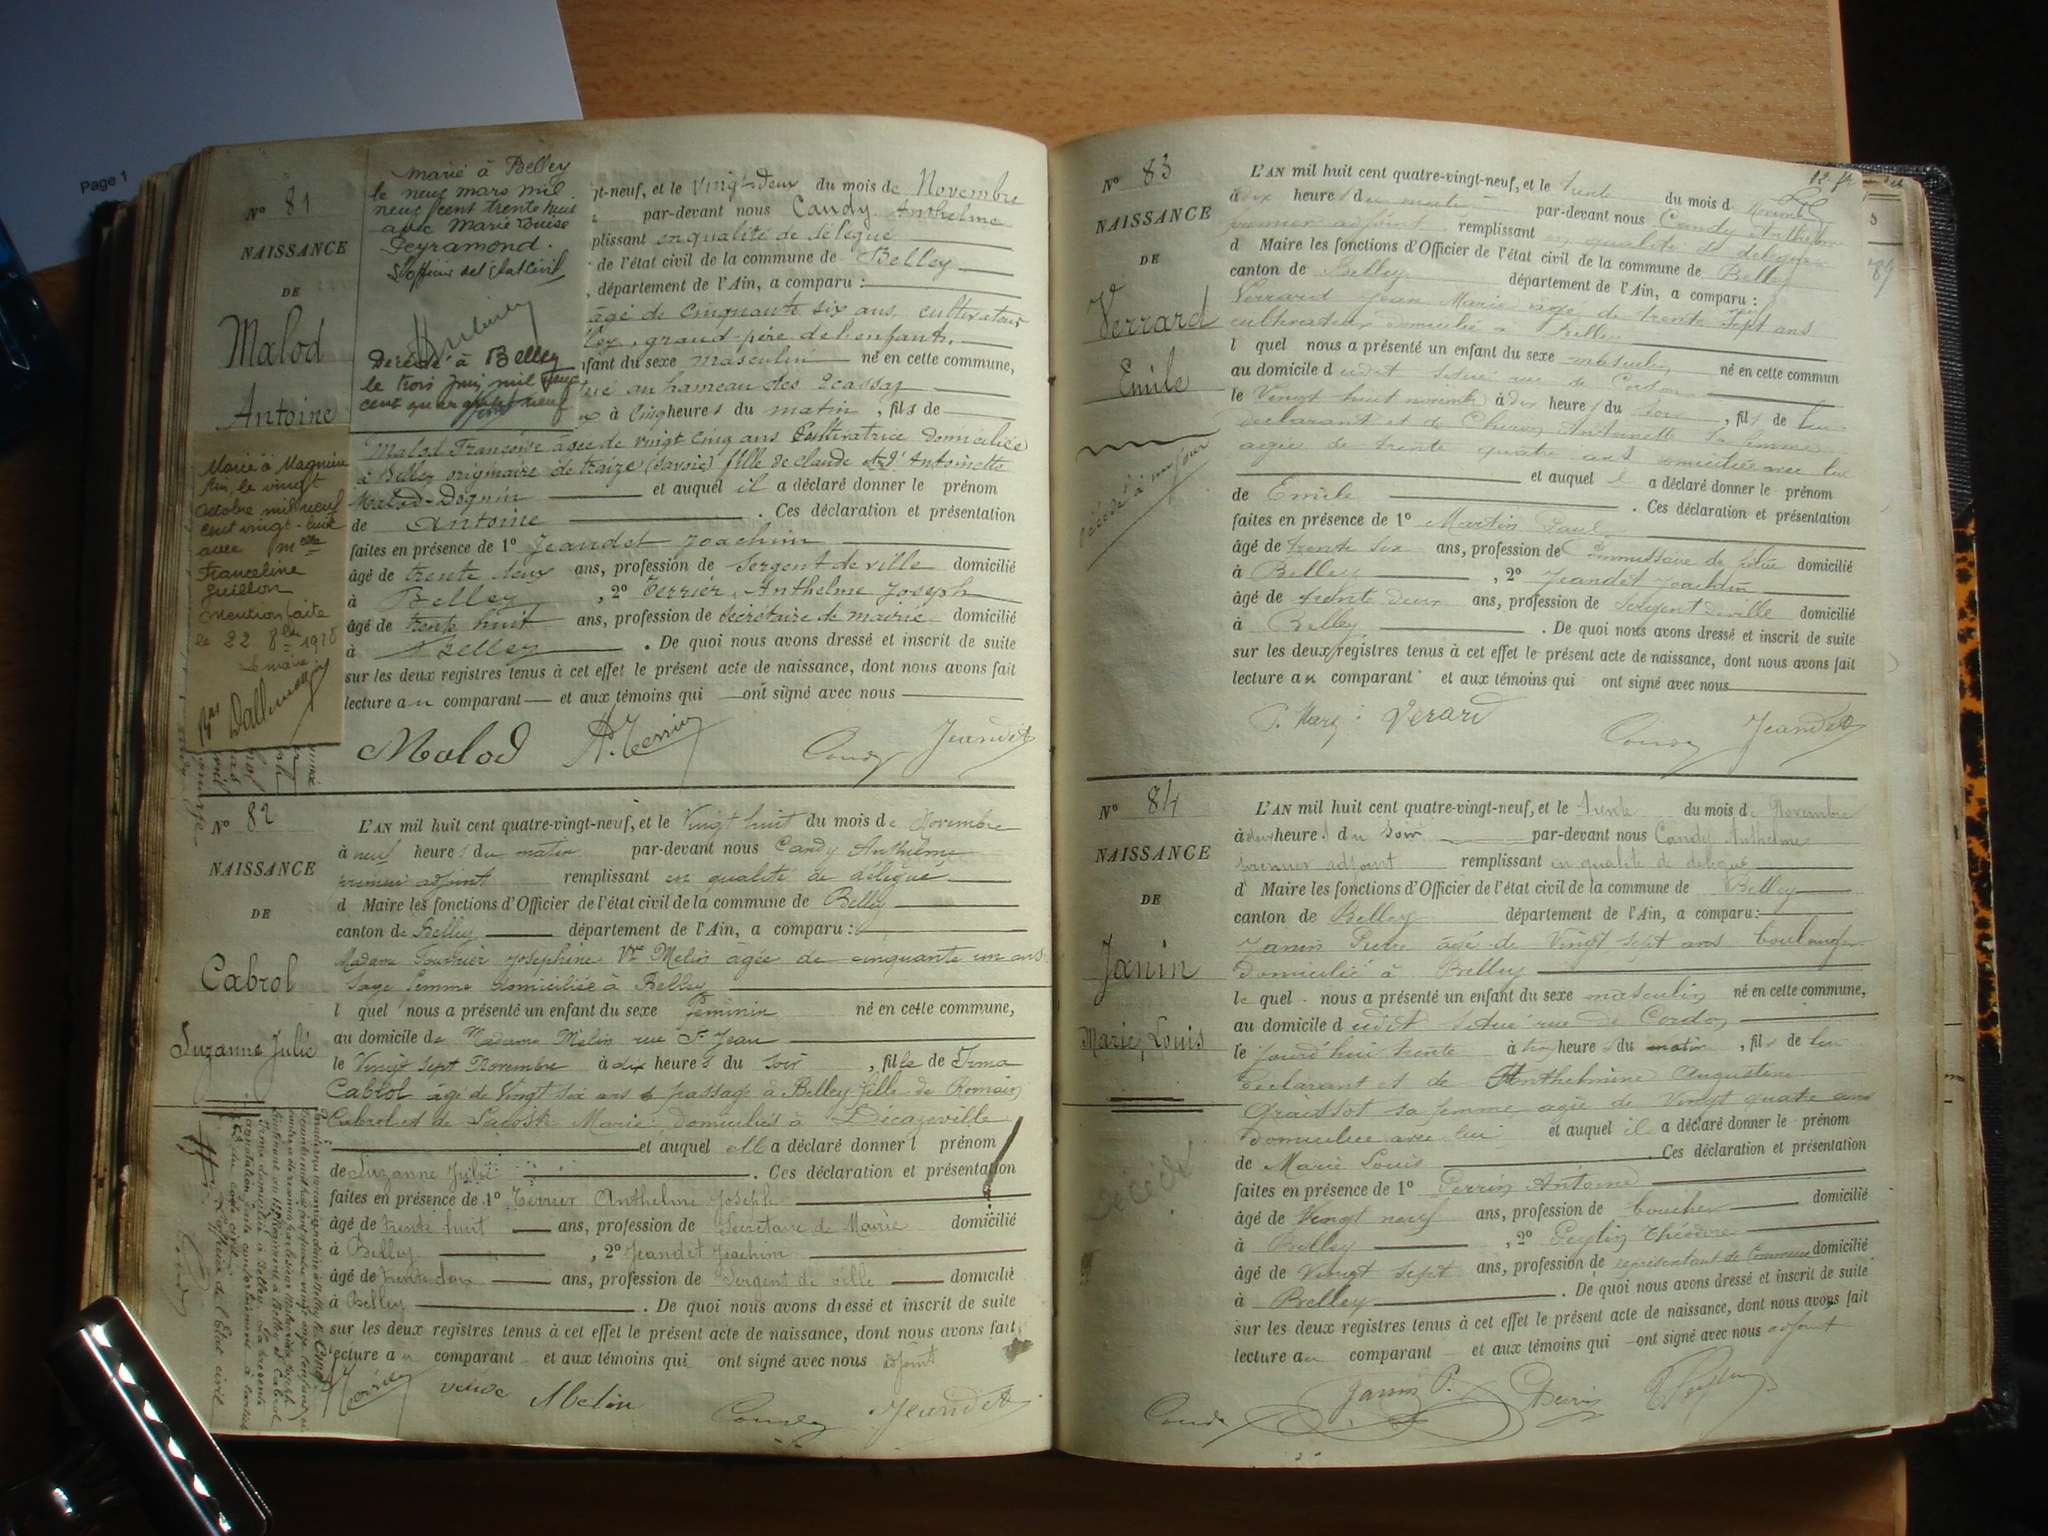 Page 1
N° 81
NAISSANCE
DE
Malod
Antoine
marié à Belley
le neuf mars mil
neuf cent trente huit
avec Marie Louise
Peyramond.
l'officier de l'état civil
Décédé à Belley
le trois juin mil neuf
cent quarante neuf
Marié à Magnieu
Ain, le vingt
octobre mil neuf
cent vingt-huit
avec Melle
Franceline
Guillon
mention faite
le 22 8bre 1928
Le maire
gt-neuf, et le Vingt-deux du mois de Novembre
par-devant nous Candy Anthelme
plissant en qualité de délégué
de l'état civil de la commune de Belley
, département de l'Ain, a comparu :
âgé de cinquante six ans, cultivateur
ley, grand-père de l'enfant,
nfant du sexe masculin né en cette commune,
tué au hameau des Ecassaz
à cinq heures du matin , fils de
Malod Françoise âgée de vingt cinq ans Cultivatrice domiciliée
à Belley originaire de traize (Savoie) fille de Claude et d'Antoinette
Malod-Dognin et auquel il a déclaré donner le prénom
de Antoine . Ces déclaration et présentation
faites en présence de 1° Jeandet Joachim
âgé de trente deux ans, profession de Sergent de ville domicilié
à Belley , 2° Terrier, Anthelme Joseph
âgé de trente huit ans, profession de Secrétaire de mairie domicilié
à Belley . De quoi nous avons dressé et inscrit de suite
sur les deux registres tenus à cet effet le présent acte de naissance, dont nous avons fait
lecture au comparant et aux témoins qui ont signé avec nous
Malod A. Terrier Candy Jeandet
N° 82
NAISSANCE
DE
Cabrol
Suzanne Julie
L'AN mil huit cent quatre-vingt-neuf, et le Vingt huit du mois de Novembre
à neuf heures du matin par-devant nous Candy Anthelme
premier adjoint remplissant en qualité de délégué
d Maire les fonctions d'Officier de l'état civil de la commune de Belley
canton de Belley département de l'Ain, a comparu :
Madame Fournier Joséphine Vve Melin âgée de cinquante un ans
Sage femme domiciliée à Belley
l quel nous a présenté un enfant du sexe féminin né en cette commune,
au domicile de Madame Melin rue St Jean
le Vingt sept Novembre à dix heures du soir , fille de Irma
Cabrol âgé de Vingt six ans de passage à Belley fille de Romain
Cabrol et de Lacoste Marie domiciliés à Décazeville
et auquel elle a déclaré donner l prénom
de Suzanne Julie . Ces déclaration et présentation
faites en présence de 1° Terrier Anthelme Joseph
âgé de trente huit ans, profession de Secrétaire de Mairie domicilié
à Belley , 2° Jeandet Joachim
âgé de trente deux ans, profession de Sergent de ville domicilié
à Belley . De quoi nous avons dressé et inscrit de suite
sur les deux registres tenus à cet effet le présent acte de naissance, dont nous avons fait
lecture au comparant et aux témoins qui ont signé avec nous adjoint
Terrier veuve Melin Candy Jeandet
N° 83
NAISSANCE
DE
Verrard
Emile
décédé à un jour
L'AN mil huit cent quatre-vingt-neuf, et le trente du mois d Novembre
à dix heures du matin par-devant nous Candy Anthelme
premier adjoint remplissant en qualité de délégué
d Maire les fonctions d'Officier de l'état civil de la commune de Belley
canton de Belley département de l'Ain, a comparu :
Verrard Jean Marie âgé de trente sept ans
cultivateur domicilié à Belley
l quel nous a présenté un enfant du sexe masculin né en cette commun
au domicile dudit situé rue de Cordon
le Vingt huit novembre à dix heures du soir , fils de lui
déclarant et de Antoinette sa femme
âgée de trente quatre ans domiciliée avec lui
et auquel il a déclaré donner le prénom
de Emile . Ces déclaration et présentation
faites en présence de 1° Martin Paul
âgé de trente six ans, profession de Commissaire de police domicilié
à Belley , 2° Jeandet Joachim
âgé de trente deux ans, profession de Sergent de ville domicilié
à Belley . De quoi nous avons dressé et inscrit de suite
sur les deux registres tenus à cet effet le présent acte de naissance, dont nous avons fait
lecture au comparant et aux témoins qui ont signé avec nous
Verard Candy Jeandet
N° 84
NAISSANCE
DE
Janin
Marie, Louis
décédé
L'AN mil huit cent quatre-vingt-neuf, et le trente du mois de Novembre
à deux heures du soir par-devant nous Candy Anthelme
premier adjoint remplissant en qualité de délégué
d Maire les fonctions d'Officier de l'état civil de la commune de Belley
canton de Belley département de l'Ain, a comparu :
Janin Pierre âgé de Vingt sept ans boulanger
domicilié à Belley
le quel nous a présenté un enfant du sexe masculin né en cette commune,
au domicile dudit situé rue de Cordon
le jourd'hui trente à heures du matin , fils de lui
déclarant et de Anthelmine Augustine
Graissot sa femme âgée de Vingt quatre ans
domiciliée avec lui et auquel il a déclaré donner le prénom
de Marie Louis . Ces déclaration et présentation
faites en présence de 1° Perrin Antoine
âgé de Vingt neuf ans, profession de boucher domicilié
à Belley , 2° Peylin Théodore
âgé de Vingt sept ans, profession de représentant de Commerce domicilié
à Belley . De quoi nous avons dressé et inscrit de suite
sur les deux registres tenus à cet effet le présent acte de naissance, dont nous avons fait
lecture au comparant et aux témoins qui ont signé avec nous adjoint
Candy Janin P. Perrin